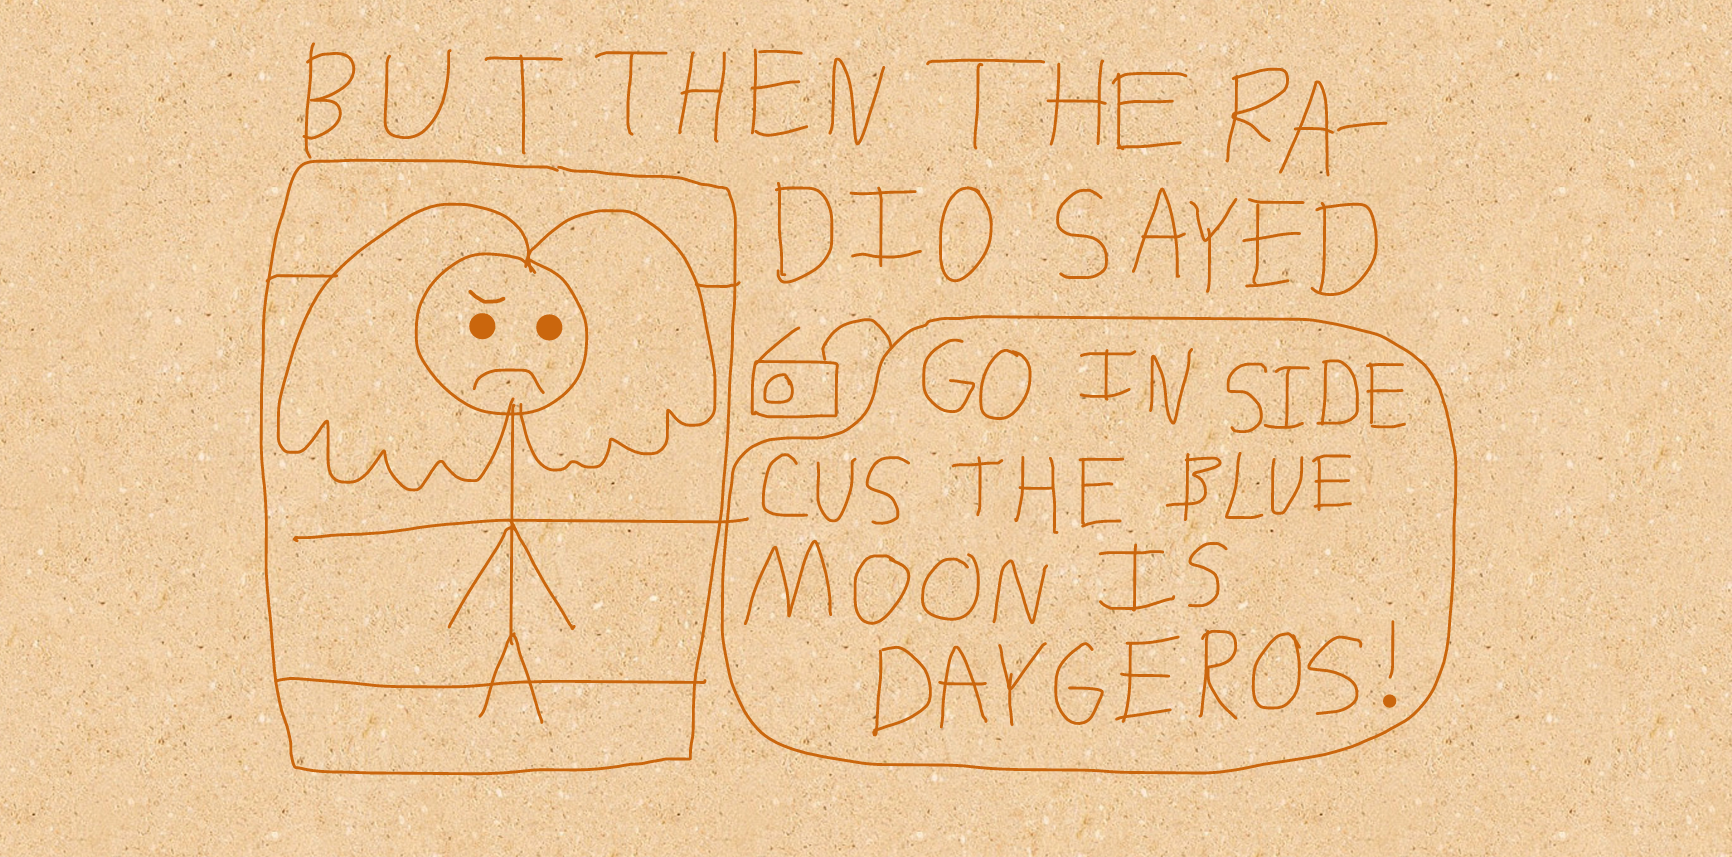 BUT THEN THE RA-
DIO SAYED
GO IN SIDE
CUS THE BLUE
MOON IS
DAYGEROS!